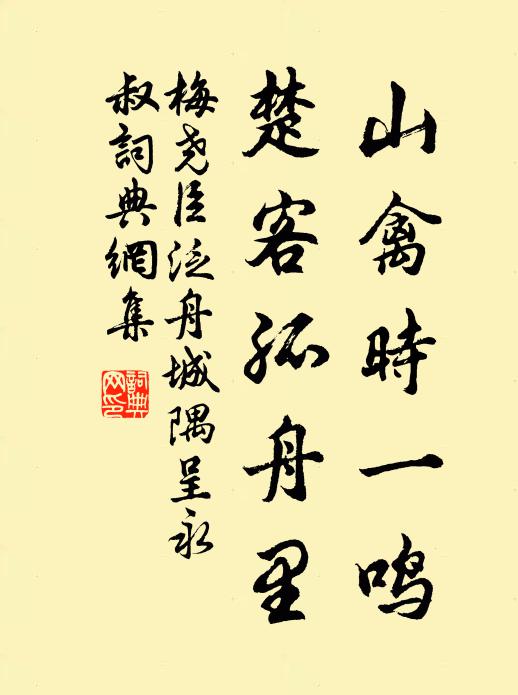 山禽時一鸣
楚客孤舟里
梅尧臣泛舟城隅呈永
叔詞典網集
詞典
网印